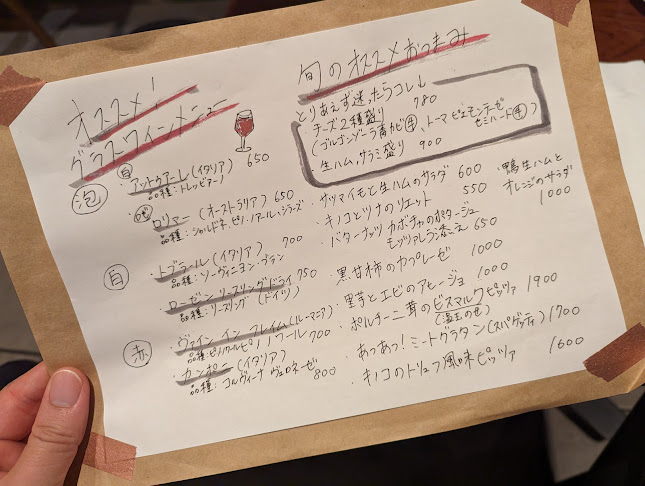 オススメ!
グラスワインメニュー
泡
白
・アットゥアーレ(イタリア) 650
品種:トレッビアーノ
ロゼ
ロリマー(オーストラリア) 650
品種:シャルドネ、ピノ・ノアール、シラーズ
白
・トブラール(イタリア) 700
品種:ソーヴィニヨン・ブラン
・ローゼン リースリング ドライ 750
品種:リースリング(ドイツ)
赤
・ヴァイン イン フレイム(ルーマニア)
品種:ピノ・ノワール 700
・カンポー(イタリア)
品種:コルヴィーナ ヴェロネーゼ 800
旬のオススメおつまみ
とりあえず迷ったらコレ↓
チーズ2種盛り 780
(ゴルゴンゾーラ青カビ牛、トーマ ピエモンテーゼ
セミハード牛)
生ハム、サラミ盛り 900
・サツマイモと生ハムのサラダ 600
・キノコとツナのリエット 550
・バターナッツカボチャのポタージュ
モッツァレラ添え 650
・黒甘柿のカプレーゼ 1000
・里芋とエビのアヒージョ 1000
・ポルチーニ茸のビスマルクピッツァ 1900
(温玉のせ)
・あっあっ!ミートグラタン(スパゲッティ) 1700
・キノコのトリュフ風味ピッツァ 1600
・鴨生ハムと
オレンジのサラダ
1000